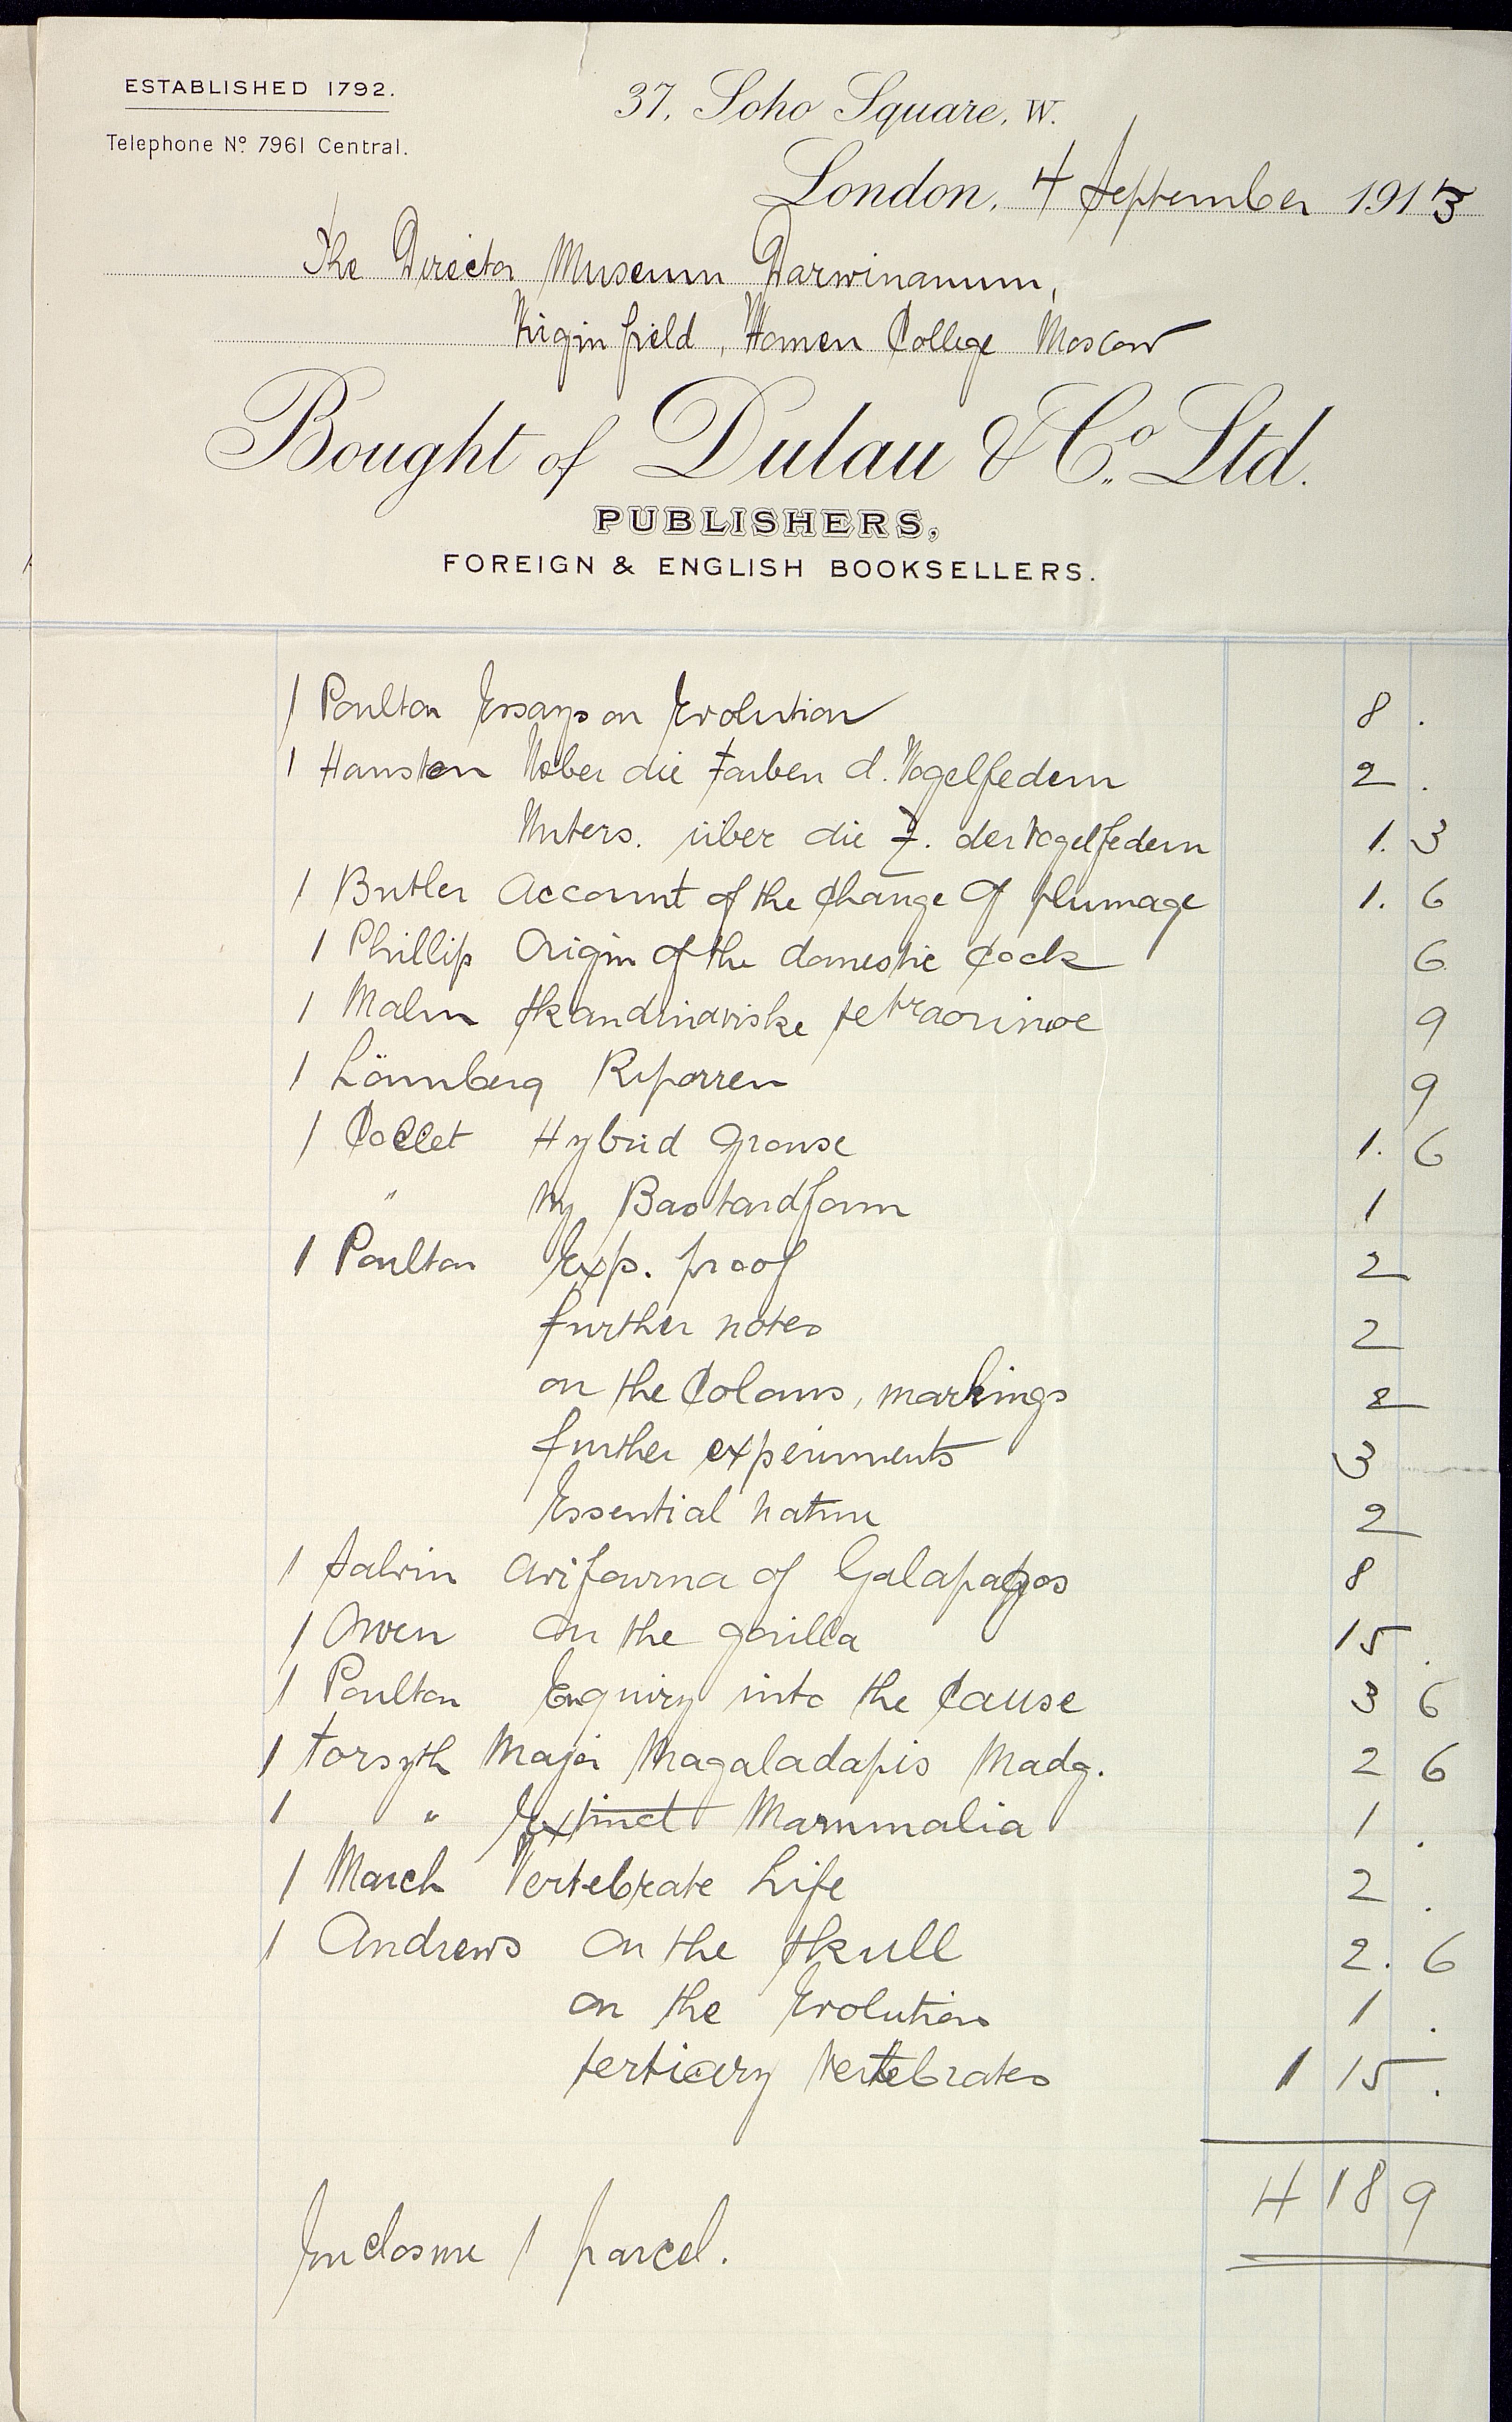 ESTABLISHED 1792.
Telephone Nº 7961 Central.
37, Soho Square, W.
London, 4 September 1913
The Director Museum Darwinanum,
Virgin field, Women College Moscow
Bought of Dulau & Cº Ltd.
PUBLISHERS,
FOREIGN & ENGLISH BOOKSELLERS.
1 Poulton Essays on Evolution 8 .
1 Hansten Ueber die Farben d. Vogelfedern 2 .
Unters. über die F. der Vogelfedern 1. 3
1 Butler Account of the Change of plumage 1. 6
1 Phillip Origin of the domestic Cock 6
1 Malm Skandinaviske tetraoninae 9
1 Lönnberg Riporren 9
1 Collet Hybrid Grouse 1. 6
" Ny Bastardform 1
1 Poulton Exp. proof 2
further notes 2
on the Colours, markings 2
further experiments 3
Essential nature 2
1 Salvin Avifauna of Galapagos 8
1 Owen On the gorilla 15 .
1 Poulton Enquiry into the Cause 3 6
1 Forsyth Major Magaladapis Madg. 2 6
1 " Extinct Mammalia 1 .
1 March Vertebrate Life 2 .
1 Andrews On the Skull 2. 6
on the Evolution 1 .
tertiary Vertebrates 1 15 .
4 18 9
Enclosure 1 parcel.